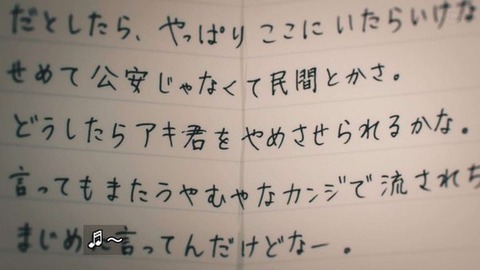 だとしたら、やっぱりここにいたらいけな
せめて公安じゃなくて民間とかさ。
どうしたらアキ君をやめさせられるかな。
言ってもまたうやむやなカンジで流されち
まじめ 言ってんだけどなー。
♬～